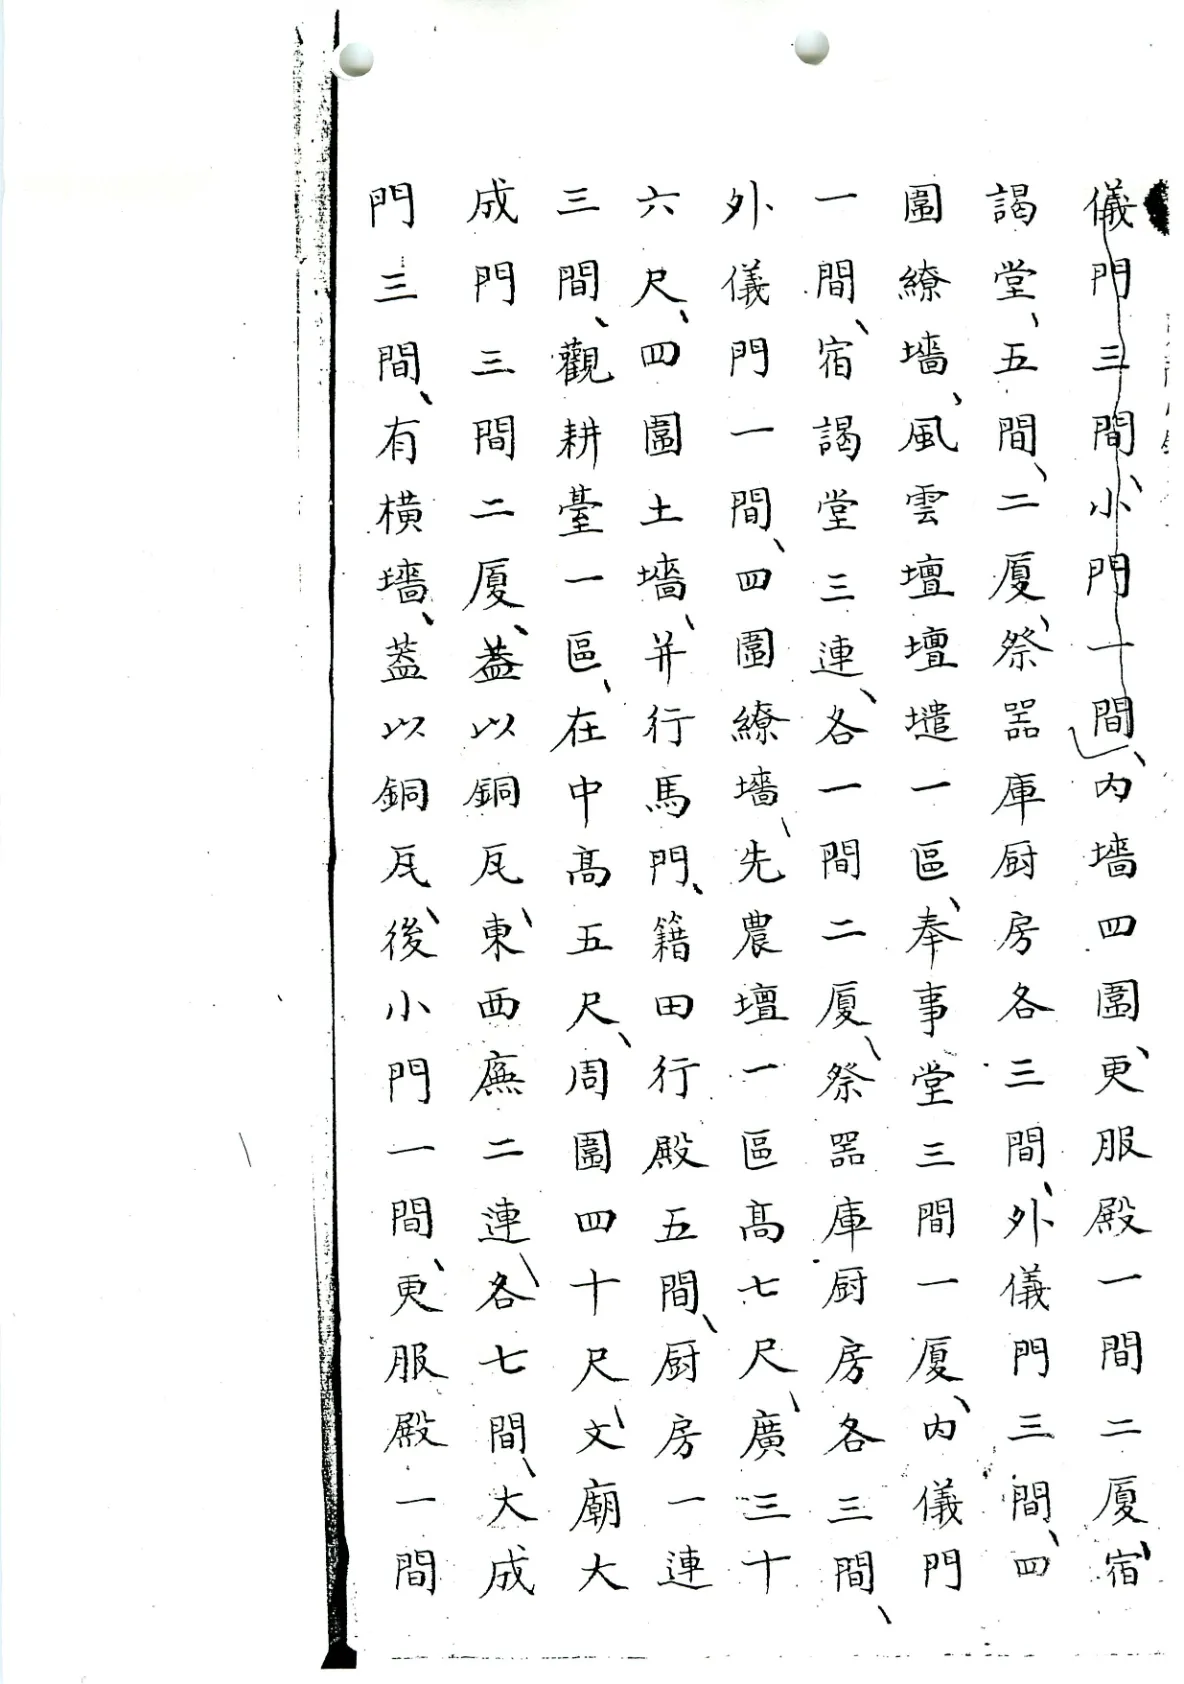 儀門三間、小門一間、内墻四圍、更服殿一間二厦、宿
謁堂、五間、二厦、祭器庫厨房各三間、外儀門三間、四
圍繚墻、風雲壇壇壝一區、奉事堂三間一厦、内儀門
一間、宿謁堂三連、各一間二厦、祭器庫厨房各三間、
外儀門一間、四圍繚墻、先農壇一區高七尺、廣三十
六尺、四圍土墻、并行馬門、籍田行殿五間、厨房一連
三間、觀耕臺一區、在中高五尺、周圍四十尺、文廟大
成門三間二厦、蓋以銅瓦、東西廡二連、各七間、大成
門三間、有橫墻、蓋以銅瓦、後小門一間、更服殿一間